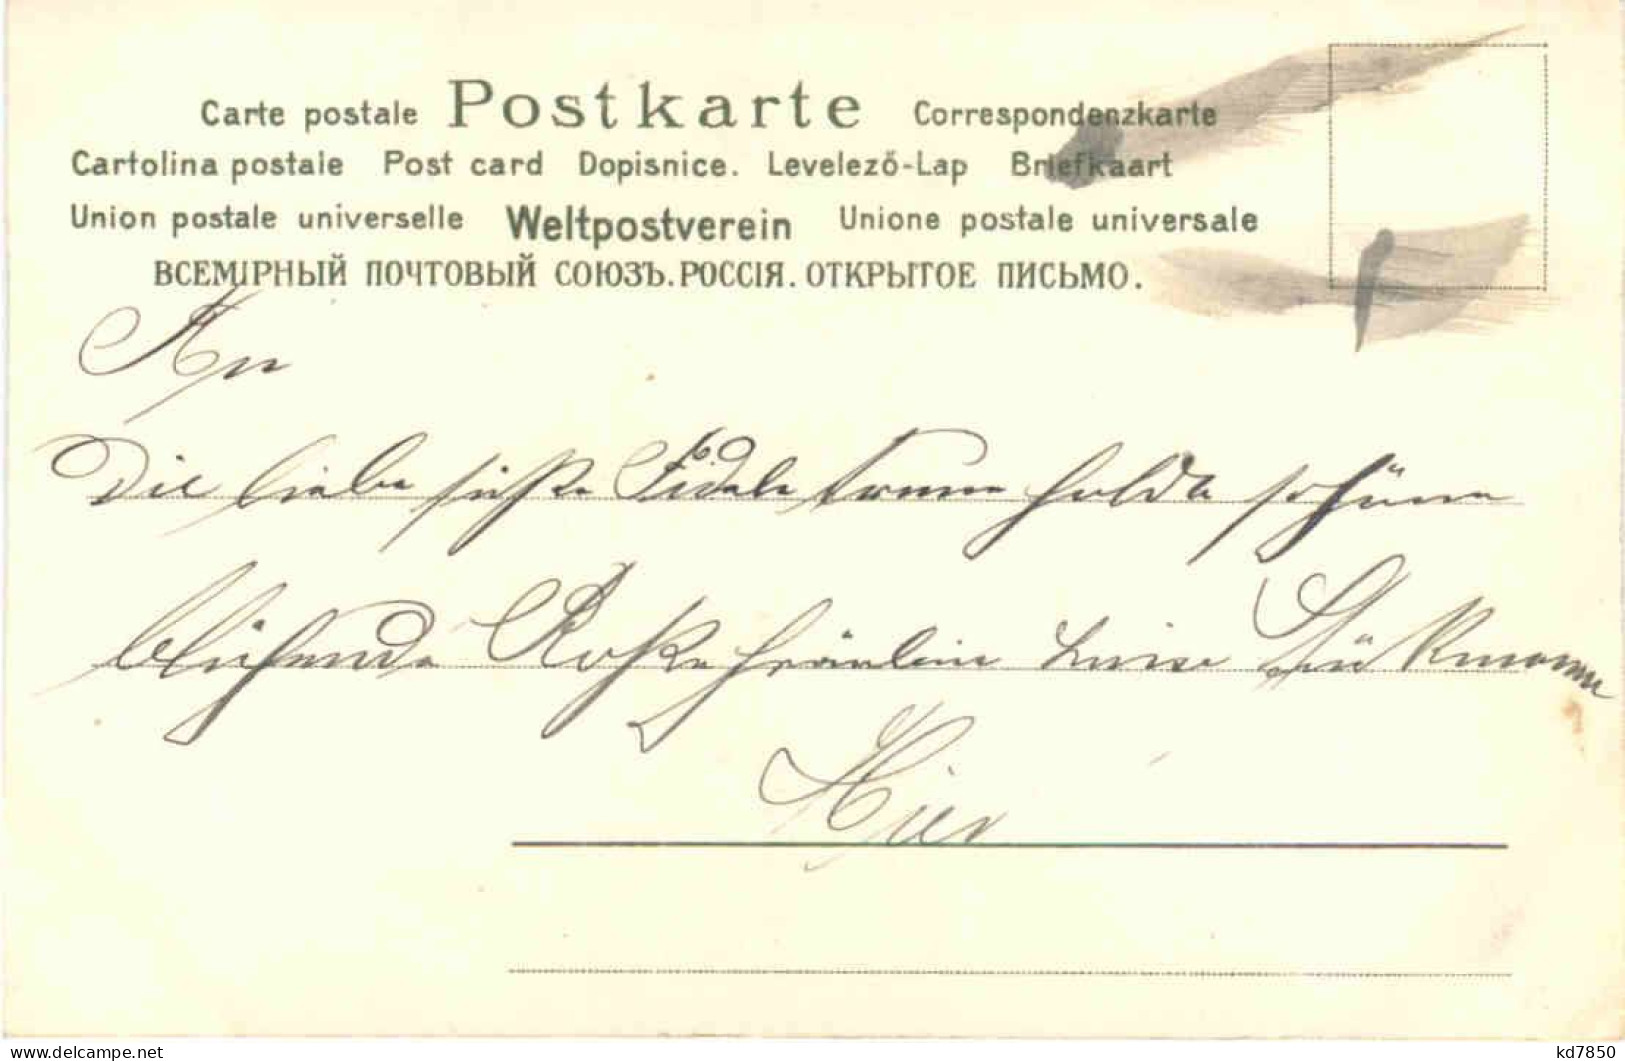 Carte postale Postkarte Correspondenzkarte
Cartolina postale Post card Dopisnice. Levelező-Lap Briefkaart
Union postale universelle Weltpostverein Unione postale universale
ВСЕМІРНЫЙ ПОЧТОВЫЙ СОЮЗЪ.РОССІЯ. ОТКРЫТОЕ ПИСЬМО.
An
Die liebe süße Fidele treue holde schöne
blühende Roße Fräulein Luise Stükmann
Hier
kd7850